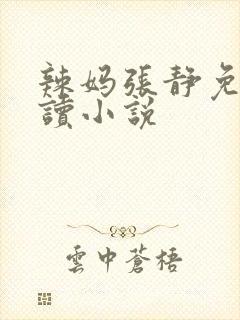 辣妈張靜免
讀小説
雲中蒼梧